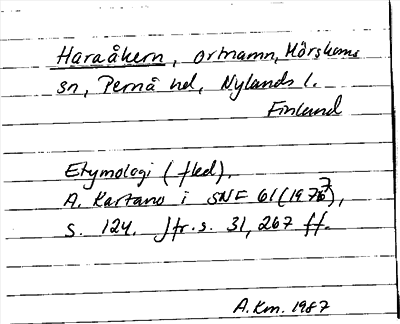 Haraåkern, ortnamn, Hörskens
sn, Pernå hd, Nylands l.
Finland
Etymologi (fled).
A. Kartano i SNF 61 (1976),
s. 124. Jfr. s. 31, 267 ff.
A.Km. 1987